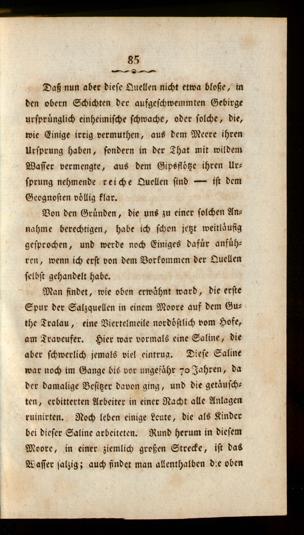 85
Daß nun aber diese Quellen nicht etwa bloße, in
den obern Schichten der aufgeschwemmten Gebirge
ursprünglich einheimische schwache, oder solche, die,
wie Einige irrig vermuthen, aus dem Meere ihren
Ursprung haben, sondern in der That mit wildem
Wasser vermengte, aus dem Gipsflötze ihren Ur-
sprung nehmende reiche Quellen sind — ist dem
Geognosten völlig klar.
Von den Gründen, die uns zu einer solchen An-
nahme berechtigen, habe ich schon jetzt weitläufig
gesprochen, und werde noch Einiges dafür anfüh-
ren, wenn ich erst von dem Vorkommen der Quellen
selbst gehandelt habe.
Man findet, wie oben erwähnt ward, die erste
Spur der Salzquellen in einem Moore auf dem Gu-
the Tralau, eine Viertelmeile nordöstlich vom Hofe,
am Traveufer. Hier war vormals eine Saline, die
aber schwerlich jemals viel eintrug. Diese Saline
war noch im Gange bis vor ungefähr 70 Jahren, da
der damalige Besitzer davon ging, und die getäusch-
ten, erbitterten Arbeiter in einer Nacht alle Anlagen
ruinirten. Noch leben einige Leute, die als Kinder
bei dieser Saline arbeiteten. Rund herum in diesem
Moore, in einer ziemlich großen Strecke, ist das
Wasser salzig; auch findet man allenthalben die oben